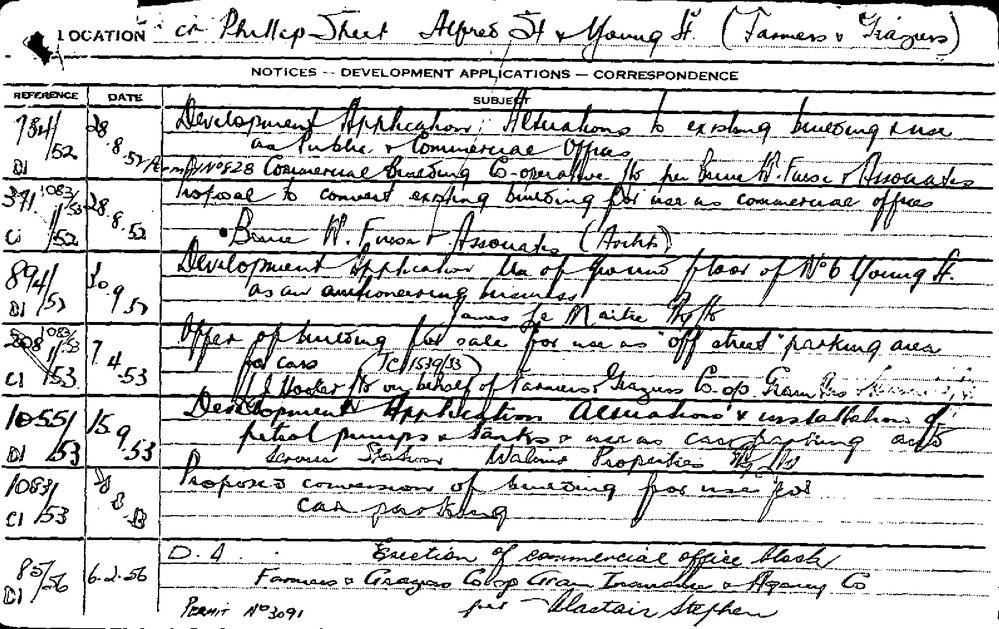 LOCATION cr Phillip Street Alfred St & Young St. (Farmers & Graziers)
NOTICES -- DEVELOPMENT APPLICATIONS — CORRESPONDENCE
REFERENCE DATE SUBJECT
784/52 DI 28.8.52 Development Application: Alterations to existing building & use
as Public & Commercial Offices
Permit No 828 Commercial Building Co-operative Ltd per Bruce W. Furse & Associates
371/52 CI 1083/53 28.8.52 Proposal to convert existing building for use as commercial offices
Bruce W. Furse & Associates (Archts)
894/52 DI 30.9.52 Development Application Use of Ground floor of No 6 Young St.
as an auctioneering business
James Le Maitre Pty Ltd
CI /53 1083/53 7.4.53 Offer of building for sale for use as "off street" parking area
for cars (TC 1539/53)
L J Hooker Ltd on behalf of Farmers & Graziers Co-op. Grain
1055/53 DI 15.9.53 Development Application Alterations & installation of
petrol pumps & tanks & use as car parking and
Service Station Pty Ltd
1083/53 CI Proposed conversion of building for use for
car parking
85/56 DI 6.2.56 D.A. Erection of commercial office block
Farmers & Graziers Co-op Grain Insurance & Agency Co
PERMIT No 3091 per Alastair Stephen